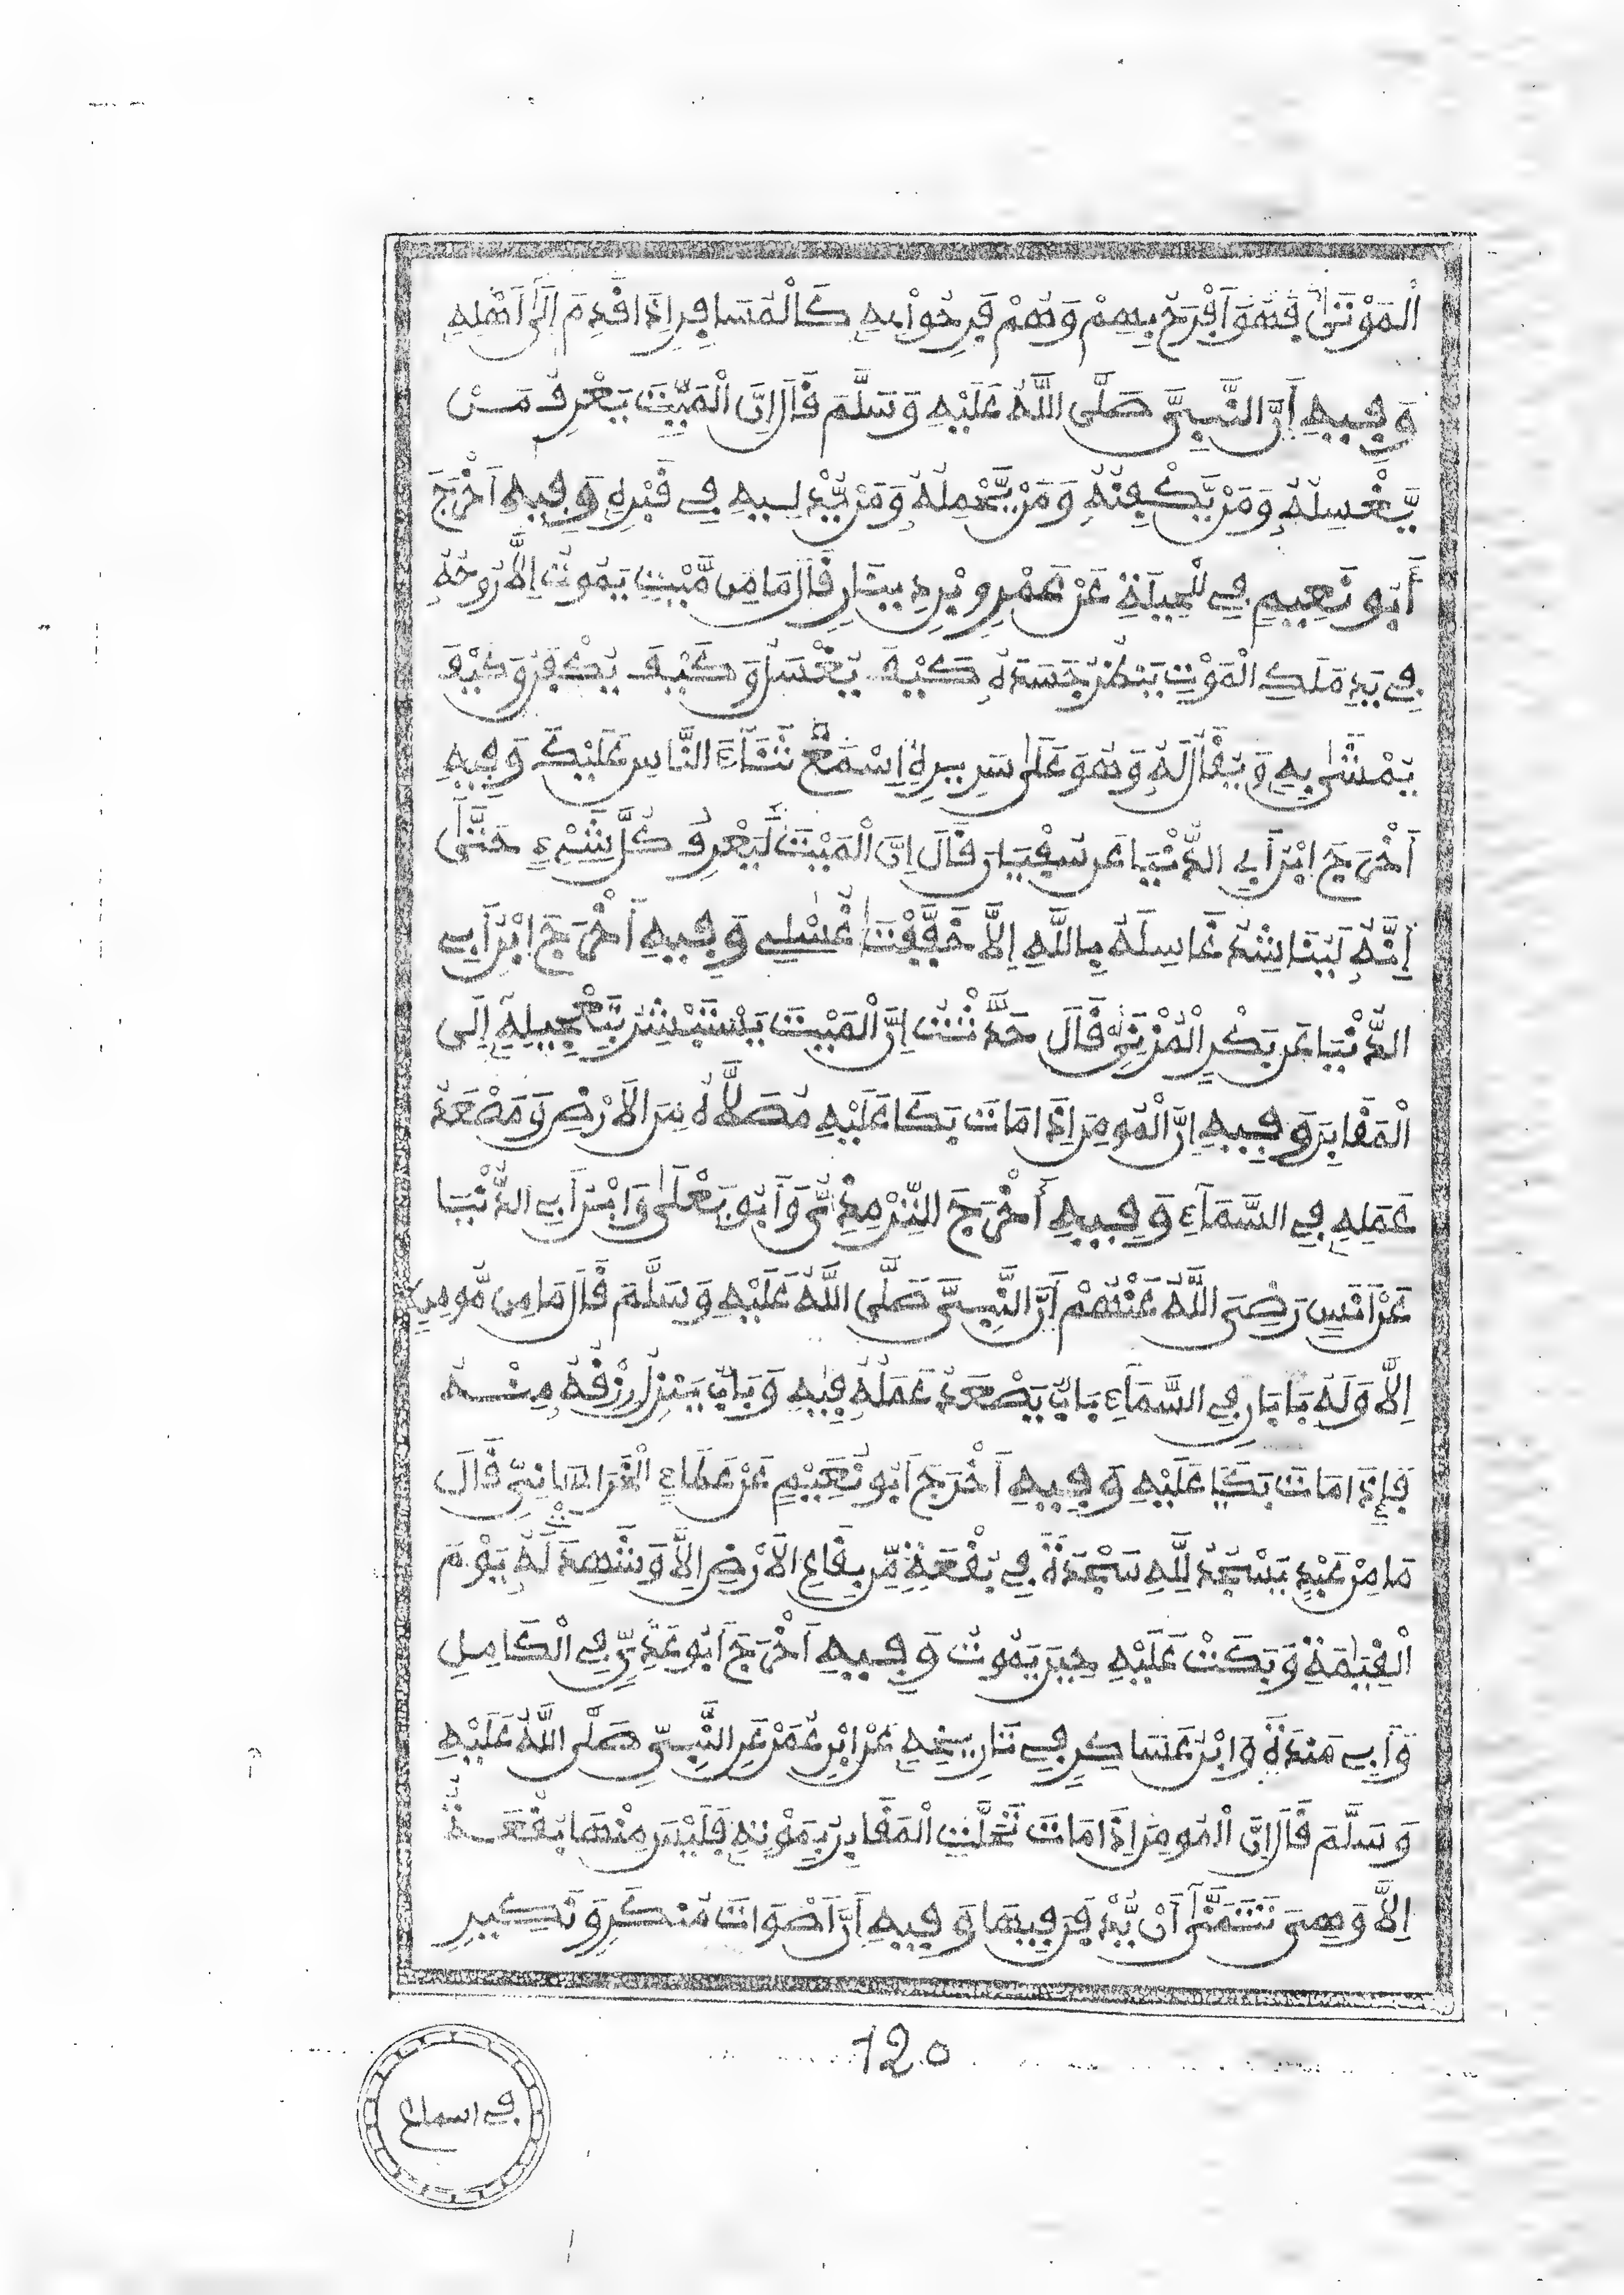 اَلْمَوْتَىٰ فَهُوَ أَفْرَحُ بِهِمْ وَهُمْ فَرِحُوا بِهِ كَالْمُسَافِرِ إِذَا قَدِمَ إِلَىٰ أَهْلِهِ
وَفِيهِ أَنَّ النَّبِيَّ صَلَّى اللَّهُ عَلَيْهِ وَسَلَّمَ قَالَ إِنَّ الْمَيِّتَ يَعْرِفُ مَنْ
يَّغْسِلُهُ وَمَنْ يَّكْفِنُهُ وَمَنْ يَّحْمِلُهُ وَمَنْ يُّدْلِيهِ فِي قَبْرِهِ وَفِيهِ أَخْرَجَ
أَبُو نُعَيْمٍ فِي الْحِيلَةِ عَنْ عَمْرِو بْنِ دِينَارٍ قَالَ مَا مِن مَّيِّتٍ يَمُوتُ إِلَّا رُوحُهُ
فِي يَدِ مَلَكِ الْمَوْتِ يَنظُرُ جَسَدَهُ كَيْفَ يُغْسَلُ وَكَيْفَ يُكْفَنُ وَكَيْفَ
يُمْشَىٰ بِهِ وَيُقَالُ لَهُ وَهُوَ عَلَىٰ سَرِيرِهِ إِسْمَعْ ثَنَآءَ النَّاسِ عَلَيْكَ وَفِيهِ
أَخْرَجَ ابْنُ أَبِي الدُّنْيَا عَن سُفْيَانَ قَالَ إِنَّ الْمَيِّتَ لَيَعْرِفُ كُلَّ شَيْءٍ حَتَّىٰ
إِنَّهُ لَيُنَاشِدُ غَاسِلَهُ بِاللَّهِ إِلَّا خَفَّفْتَ غُسْلِي وَفِيهِ أَخْرَجَ ابْنُ أَبِي
الدُّنْيَا عَن بَكْرٍ الْمُزَنِيِّ قَالَ حُدِّثْتُ إِنَّ الْمَيِّتَ يَسْتَبْشِرُ بِتَعْجِيلِهِ إِلَى
الْمَقَابِرِ وَفِيهِ إِنَّ الْمُومِنَ إِذَا مَاتَ بَكَا عَلَيْهِ مُصَلَّاهُ مِنَ الْأَرْضِ وَمَصْعَدُ
عَمَلِهِ فِي السَّمَآءِ وَفِيهِ أَخْرَجَ التِّرْمِذِيُّ وَأَبُو يَعْلَىٰ وَابْنُ أَبِي الدُّنْيَا
عَنْ أَنَسٍ رَضِيَ اللَّهُ عَنْهُمْ أَنَّ النَّبِيَّ صَلَّى اللَّهُ عَلَيْهِ وَسَلَّمَ قَالَ مَا مِن مُّومِنٍ
إِلَّا وَلَهُ بَابَانِ فِي السَّمَآءِ بَابٌ يَصْعَدُ عَمَلُهُ فِيهِ وَبَابٌ يَنْزِلُ رِزْقُهُ مِنْهُ
فَإِذَا مَاتَ بَكَيَا عَلَيْهِ وَفِيهِ أَخْرَجَ أَبُو نُعَيْمٍ عَنْ عَطَاءٍ الْخُرَاسَانِيِّ قَالَ
مَا مِنْ عَبْدٍ يَسْجُدُ لِلَّهِ سَجْدَةً فِي بُقْعَةٍ مِّن بِقَاعِ الْأَرْضِ إِلَّا وَشَهِدَ لَهُ يَوْمَ
الْقِيَٰمَةِ وَبَكَتْ عَلَيْهِ حِينَ يَمُوتُ وَفِيهِ أَخْرَجَ أَبُو عَدِيٍّ فِي الْكَامِلِ
وَأَبِي مَنْدَةَ وَابْنُ عَسَاكِرٍ فِي تَارِيخِهِ عَنْ ابْنِ عُمَرْ عَنِ النَّبِيِّ صَلَّى اللَّهُ عَلَيْهِ
وَسَلَّمَ قَالَ إِنَّ الْمُومِنَ إِذَا مَاتَ تَحَلَّتِ الْمَقَابِرُ بِمَوْتِهِ فَلَيْسَ مِنْهَا بُقْعَةٌ
إِلَّا وَهِيَ تَتَمَنَّىٰ أَنْ يُّدْفَنَ فِيهَا وَفِيهِ أَنَّ أَصْوَاتَ مُنكَرٍ وَنَكِيرٍ
120
في اسماع